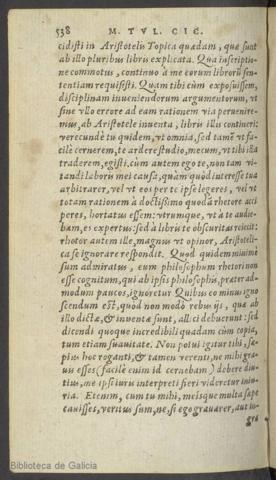 538 M. TVL. CIC.
cidisti in Aristotelis Topica quædam, quæ sunt
ab illo pluribus libris explicata. Qua inscriptio-
ne commotus, continuo à me eorum librorū sen-
tentiam requisisti. Quam tibi cùm exposuissem,
disciplinam inueniendorum argumentorum, vt
sine vllo errore ad eam rationem via peruenire-
mus, ab Aristotele inuenta, libris illis contineri:
verecundè tu quidem, vt omnia, sed tamē vt fa-
cilè cernerem, te ardere studio, mecum, vt tibi illa
traderem, egisti, cùm autem ego te, non tam vi-
tandi laboris mei causa, quàm quòd interesse tua
arbitrarer, vel vt eos per te ipse legeres, vel vt
totam rationem à doctissimo quodā rhetore acci
peres, hortatus essem: vtrumque, vt à te audie-
bam, es expertus: sed à libris te obscuritas reiecit:
rhetor autem ille, magnus vt opinor, Aristoteli-
ca se ignorare respondit. Quod quidem minimè
sum admiratus, eum philosophum rhetori non
esse cognitum, qui ab ipsis philosophis, præter ad-
modum paucos, ignoretur Quibus eo minus igno
scendum est, quòd non modò rebus ijs, quæ ab
illo dictæ, & inuentæ sunt, allici debuerunt: sed
dicendi quoque incredibili quadam cùm copia,
tum etiam suauitate. Non potui igitur tibi, sæ-
pius hoc roganti, & tamen verenti, ne mihi gra-
uis esses (facilè enim id cernebam) debere diu-
tius, ne ipsi iuris interpreti fieri videretur iniu-
ria. Etenim, cum tu mihi, meisque multa sæpe
cauisses, veritus sum, ne, si ego grauarer, aut in-
gra
Biblioteca de Galicia